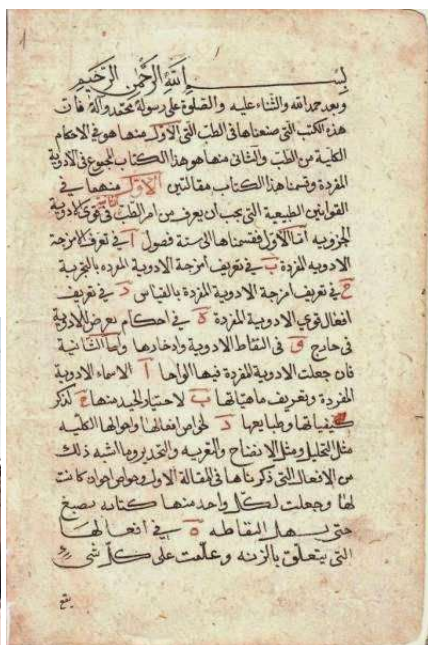 بسم الله الرحمن الرحيم
وبعد حمد الله والثناء عليه والصلوة على رسوله محمد وآله فان
هذه الكتب التى صنعناها فى الطب التى الاول منها هو فى الاحكام
الكلية من الطب والثانى منها هو هذا الكتاب المجموع فى الادوية
المفردة وقسمنا هذا الكتاب مقالتين الاول منهما فى
القوانين الطبيعية التى يجب ان يعرف من امر الطب فى قوى الادوية
الجزويه اما الاول فقسمناها الى ستة فصول آ فى تعرف امزجة
الادويه المفردة ب فى تعريف امزجة الادوية المفرده بالتجربة
ج فى تعريف امزجة الادوية المفردة بالقياس د فى تعريف
افعال قوى الادوية المفردة ه فى احكام يعرض للادوية
فى خارج و فى التقاط الادوية وادخارها واما الثانية
فان جعلت الادوية المفردة فيها الواحا آ الاسماء الادوية
المفردة وتعريف ماهياتها ب لاختيار الجيد منها ج لذكر
كيفياتها وطبايعها د لخواص افعالها واحوالها الكليه
مثل التحليل ومثل الانضاح والتغريه والتخدير وما اشبه ذلك
من الافعال التى ذكرناها فى المقالة الاول وخواص اخرى ان كانت
لها وجعلت لكل واحد منها كتابه بصبغ
حتى يسهل التقاطه ه فى افعالها
التى يتعلق بالزينه وعلمت على كل شى
يقع